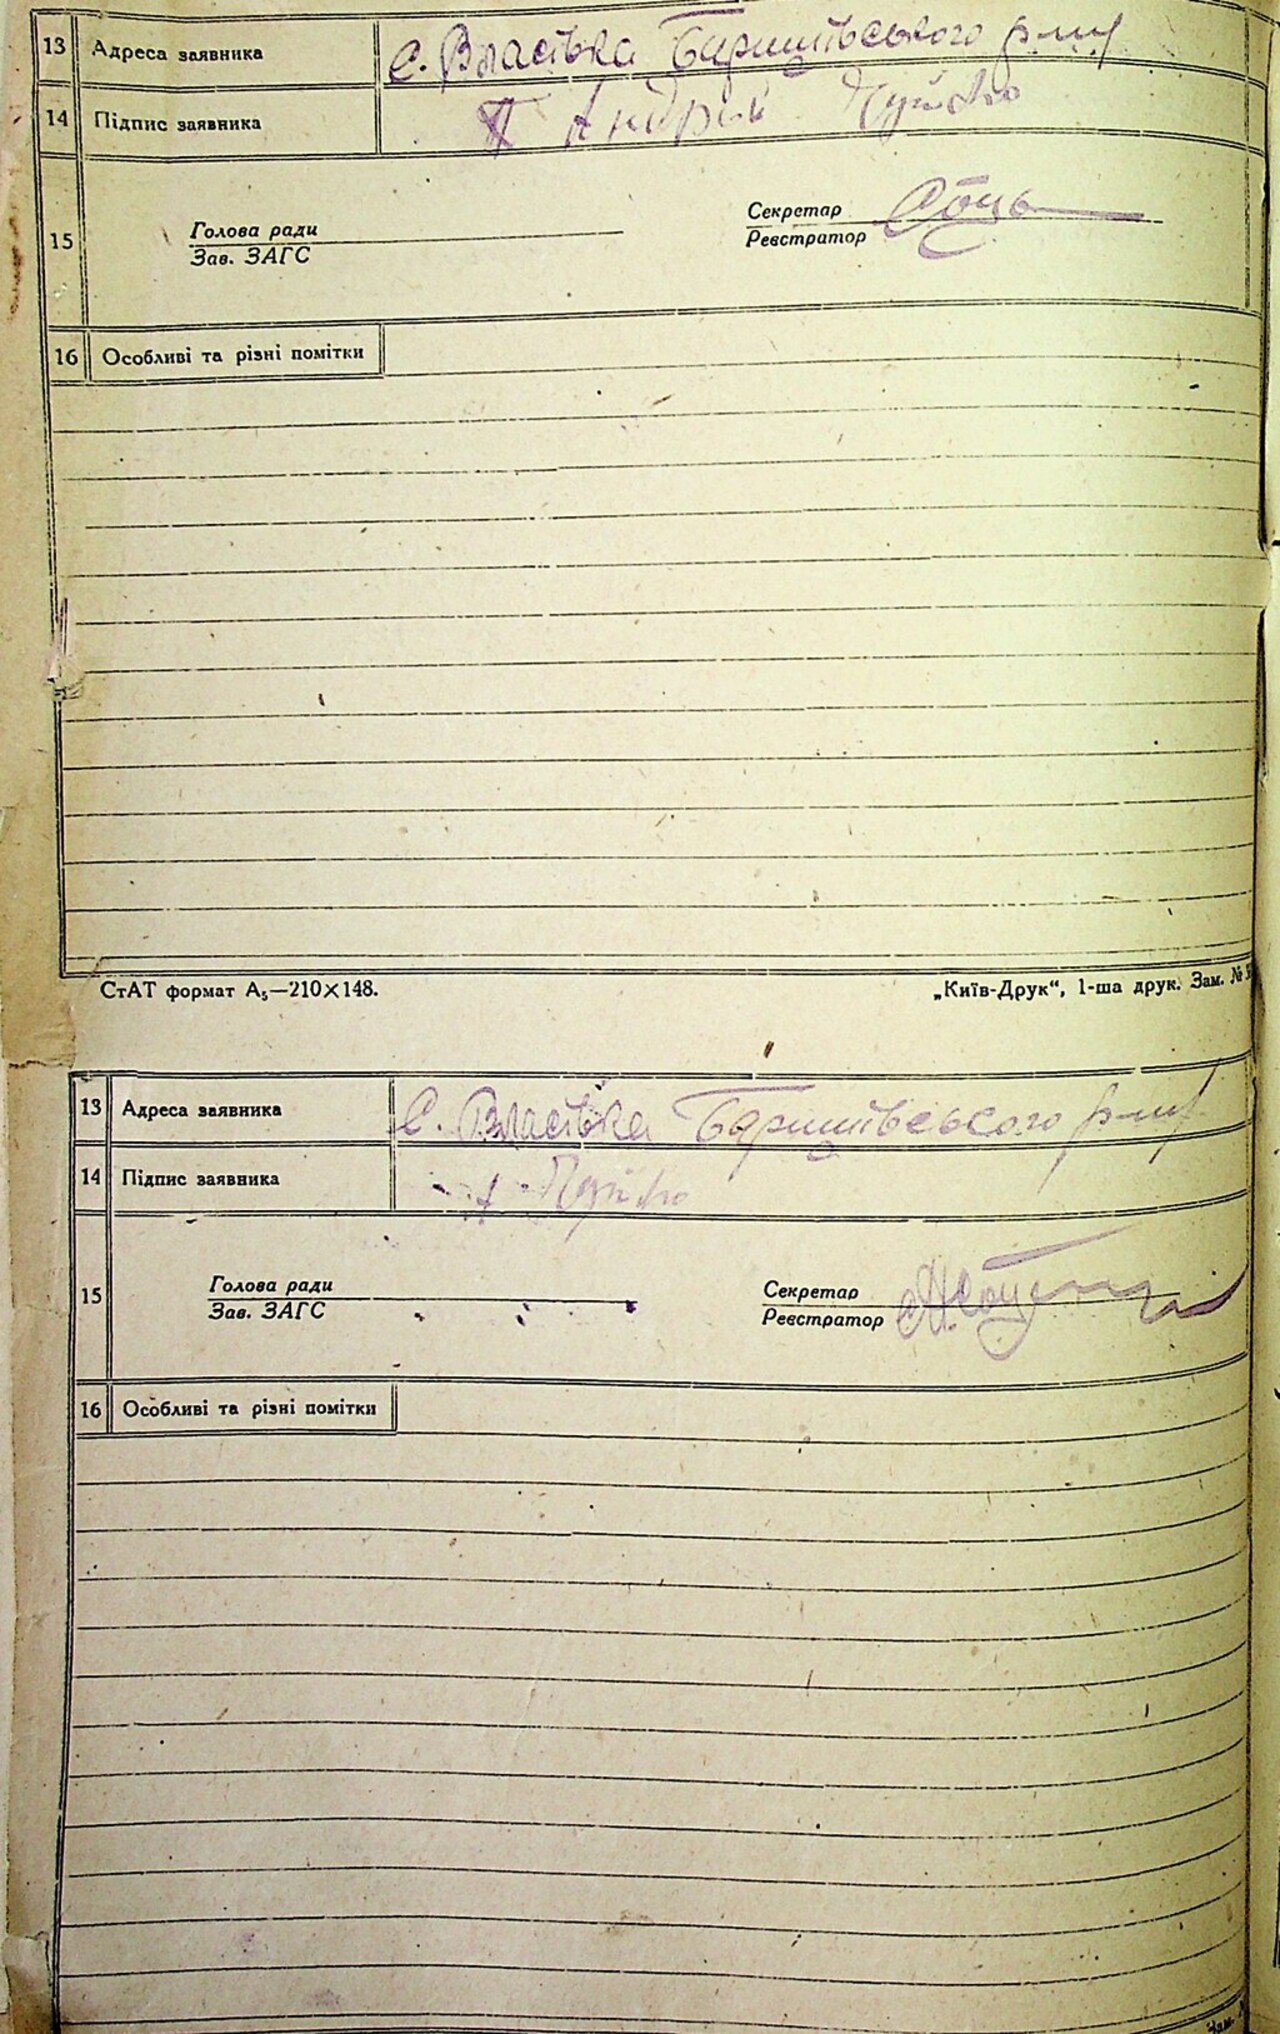 13 Адреса заявника с. Власівка Баришівського р-ну
14 Підпис заявника Андрій
15 Голова ради Секретар
Зав. ЗАГС Реєстратор
16 Особливі та різні помітки
СтАТ формат А₅—210×148. „Київ-Друк“, 1-ша друк. Зам. №
13 Адреса заявника с. Власівка Баришівського р-ну
14 Підпис заявника
15 Голова ради Секретар
Зав. ЗАГС Реєстратор
16 Особливі та різні помітки
Зам.